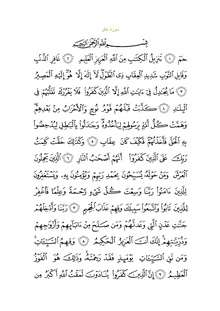 سورة غافر
بِسْمِ اللَّهِ الرَّحْمَٰنِ الرَّحِيمِ
حمٓ ﴿١﴾ تَنزِيلُ الْكِتَٰبِ مِنَ اللَّهِ الْعَزِيزِ الْعَلِيمِ ﴿٢﴾ غَافِرِ الذَّنۢبِ
وَقَابِلِ التَّوْبِ شَدِيدِ الْعِقَابِ ذِى الطَّوْلِ لَآ إِلَٰهَ إِلَّا هُوَ إِلَيْهِ الْمَصِيرُ
﴿٣﴾ مَا يُجَٰدِلُ فِىٓ ءَايَٰتِ اللَّهِ إِلَّا الَّذِينَ كَفَرُوا فَلَا يَغْرُرْكَ تَقَلُّبُهُمْ فِى
الْبِلَٰدِ ﴿٤﴾ كَذَّبَتْ قَبْلَهُمْ قَوْمُ نُوحٍ وَالْأَحْزَابُ مِنۢ بَعْدِهِمْ
وَهَمَّتْ كُلُّ أُمَّةٍۭ بِرَسُولِهِمْ لِيَأْخُذُوهُ وَجَٰدَلُوا بِالْبَٰطِلِ لِيُدْحِضُوا
بِهِ الْحَقَّ فَأَخَذْتُهُمْ فَكَيْفَ كَانَ عِقَابِ ﴿٥﴾ وَكَذَٰلِكَ حَقَّتْ كَلِمَتُ
رَبِّكَ عَلَى الَّذِينَ كَفَرُوٓا أَنَّهُمْ أَصْحَٰبُ النَّارِ ﴿٦﴾ الَّذِينَ يَحْمِلُونَ
الْعَرْشَ وَمَنْ حَوْلَهُ يُسَبِّحُونَ بِحَمْدِ رَبِّهِمْ وَيُؤْمِنُونَ بِهِ وَيَسْتَغْفِرُونَ
لِلَّذِينَ ءَامَنُوا رَبَّنَا وَسِعْتَ كُلَّ شَىْءٍ رَّحْمَةً وَعِلْمًا فَاغْفِرْ
لِلَّذِينَ تَابُوا وَاتَّبَعُوا سَبِيلَكَ وَقِهِمْ عَذَابَ الْجَحِيمِ ﴿٧﴾ رَبَّنَا وَأَدْخِلْهُمْ
جَنَّٰتِ عَدْنٍ الَّتِى وَعَدتَّهُمْ وَمَن صَلَحَ مِنْ ءَابَآئِهِمْ وَأَزْوَٰجِهِمْ
وَذُرِّيَّٰتِهِمْ إِنَّكَ أَنتَ الْعَزِيزُ الْحَكِيمُ ﴿٨﴾ وَقِهِمُ السَّيِّـَٔاتِ
وَمَن تَقِ السَّيِّـَٔاتِ يَوْمَئِذٍ فَقَدْ رَحِمْتَهُ وَذَٰلِكَ هُوَ الْفَوْزُ
الْعَظِيمُ ﴿٩﴾ إِنَّ الَّذِينَ كَفَرُوا يُنَادَوْنَ لَمَقْتُ اللَّهِ أَكْبَرُ مِن